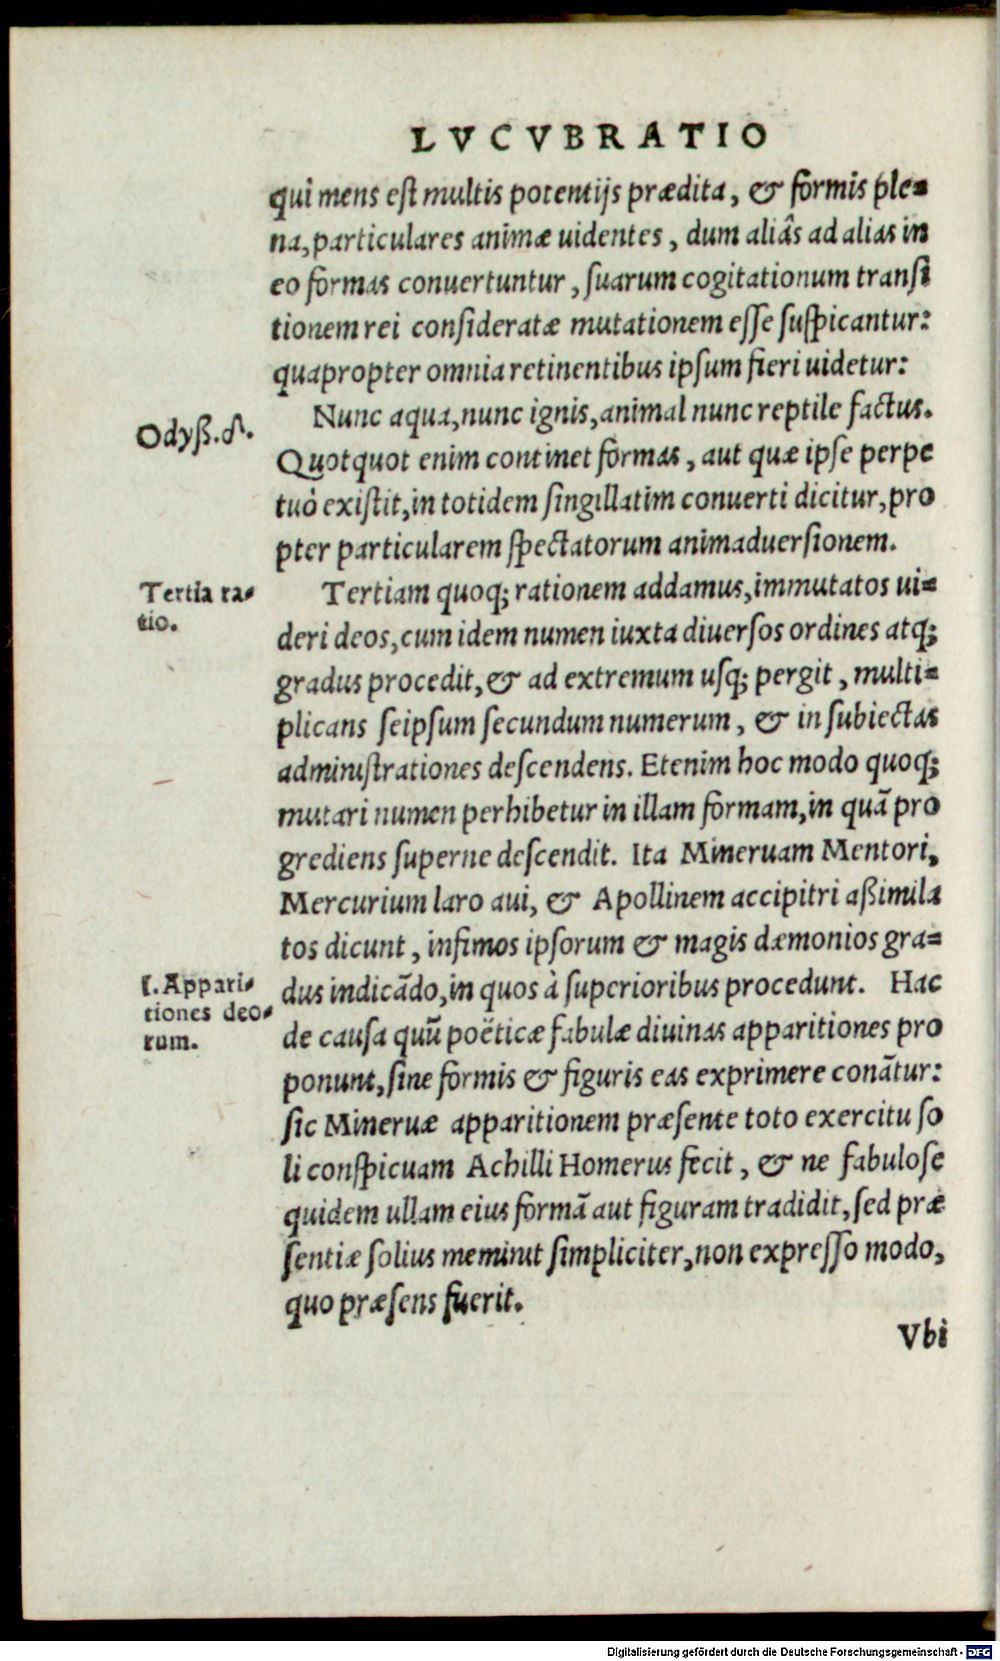 LVCVBRATIO
qui mens eſt multis potentijs prædita, & formis ple=
na, particulares animæ uidentes, dum aliâs ad alias in
eo formas conuertuntur, ſuarum cogitationum tranſi
tionem rei conſideratæ mutationem eſſe ſuſpicantur:
quapropter omnia retinentibus ipſum fieri uidetur:
Nunc aqua, nunc ignis, animal nunc reptile factus.
Odyß.δ.
Quotquot enim continet formas, aut quæ ipſe perpe
tuò exiſtit, in totidem ſingillatim conuerti dicitur, pro
pter particularem ſpectatorum animaduerſionem.
Tertia ra=
tio.
Tertiam quoq; rationem addamus, immutatos ui=
deri deos, cum idem numen iuxta diuerſos ordines atq;
gradus procedit, & ad extremum uſq; pergit, multi=
plicans ſeipſum ſecundum numerum, & in ſubiectas
adminiſtrationes deſcendens. Etenim hoc modo quoq;
mutari numen perhibetur in illam formam, in quã pro
grediens ſuperne deſcendit. Ita Mineruam Mentori,
Mercurium laro aui, & Apollinem accipitri aßimila
tos dicunt, infimos ipſorum & magis dæmonios gra=
I. Appari=
tiones deo=
rum.
dus indicãdo, in quos à ſuperioribus procedunt. Hac
de cauſa quũ poëticæ fabulæ diuinas apparitiones pro
ponunt, ſine formis & figuris eas exprimere conãtur:
ſic Mineruæ apparitionem præſente toto exercitu ſo
li conſpicuam Achilli Homerus fecit, & ne fabuloſe
quidem ullam eius formã aut figuram tradidit, ſed præ
ſentiæ ſolius meminit ſimpliciter, non expreſſo modo,
quo præſens fuerit.
Vbi
Digitalisierung gefördert durch die Deutsche Forschungsgemeinschaft - DFG